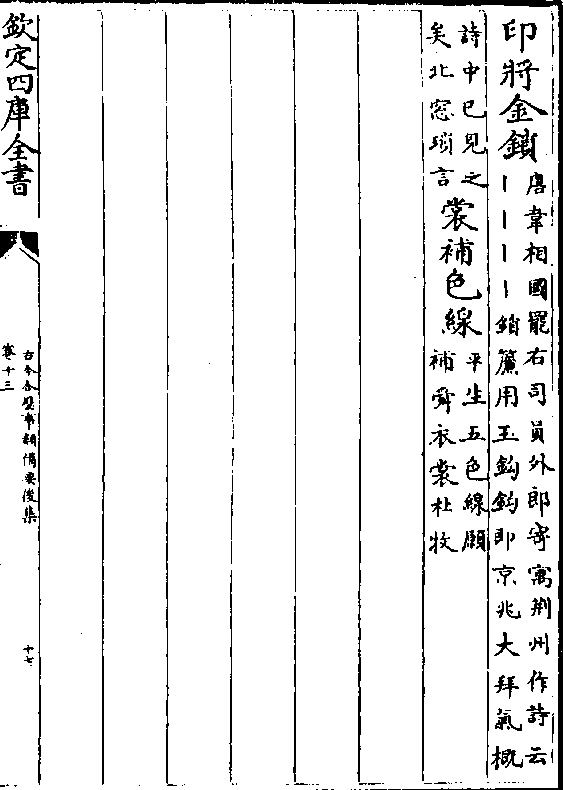 印將金鎖
唐韋相國罷右司員外郎寄寓荆州作詩云
｜｜｜｜鎖簾用玉鈎鈎即京兆大拜氣概
詩中已見之
矣北窓瑣言
裳補色線
平生五色線願
補舜衣裳杜牧
欽定四庫全書
古今合璧事類備要後集
卷十三
十七